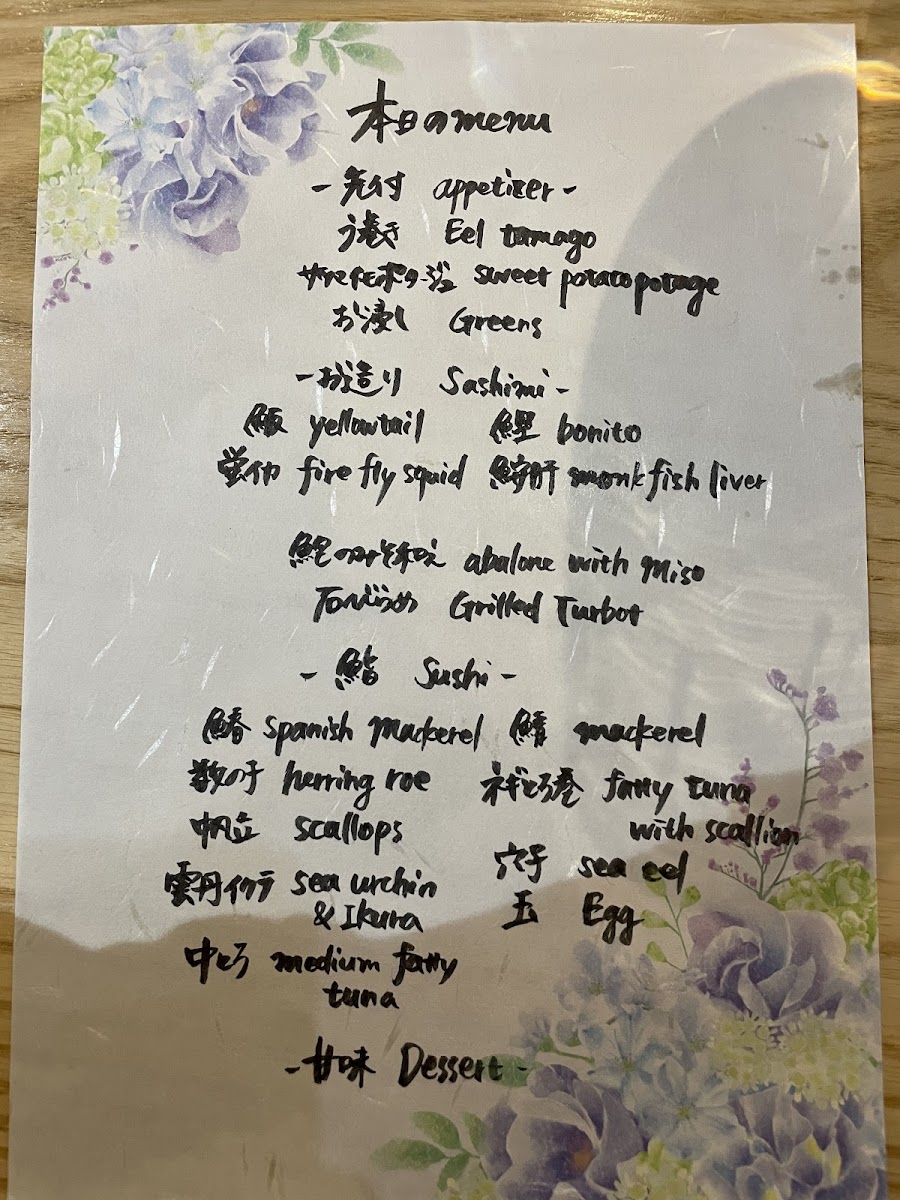 本日のmenu
- 先付 appetizer -
う巻き Eel tamago
サツマイモポタージュ sweet potato potage
お浸し Greens
- お造り Sashimi -
鰤 yellowtail 鰹 bonito
蛍イカ fire fly squid 鮟肝 monkfish liver
鮑のみそ和え abalone with miso
石びらめ Grilled Turbot
- 鮨 Sushi -
鰆 Spanish Mackerel 鯖 mackerel
数の子 herring roe ネギとろ巻 fatty tuna
with scallion
帆立 scallops
穴子 sea eel
雲丹イクラ sea urchin
& Ikura
玉 Egg
中とろ medium fatty
tuna
- 甘味 Dessert -